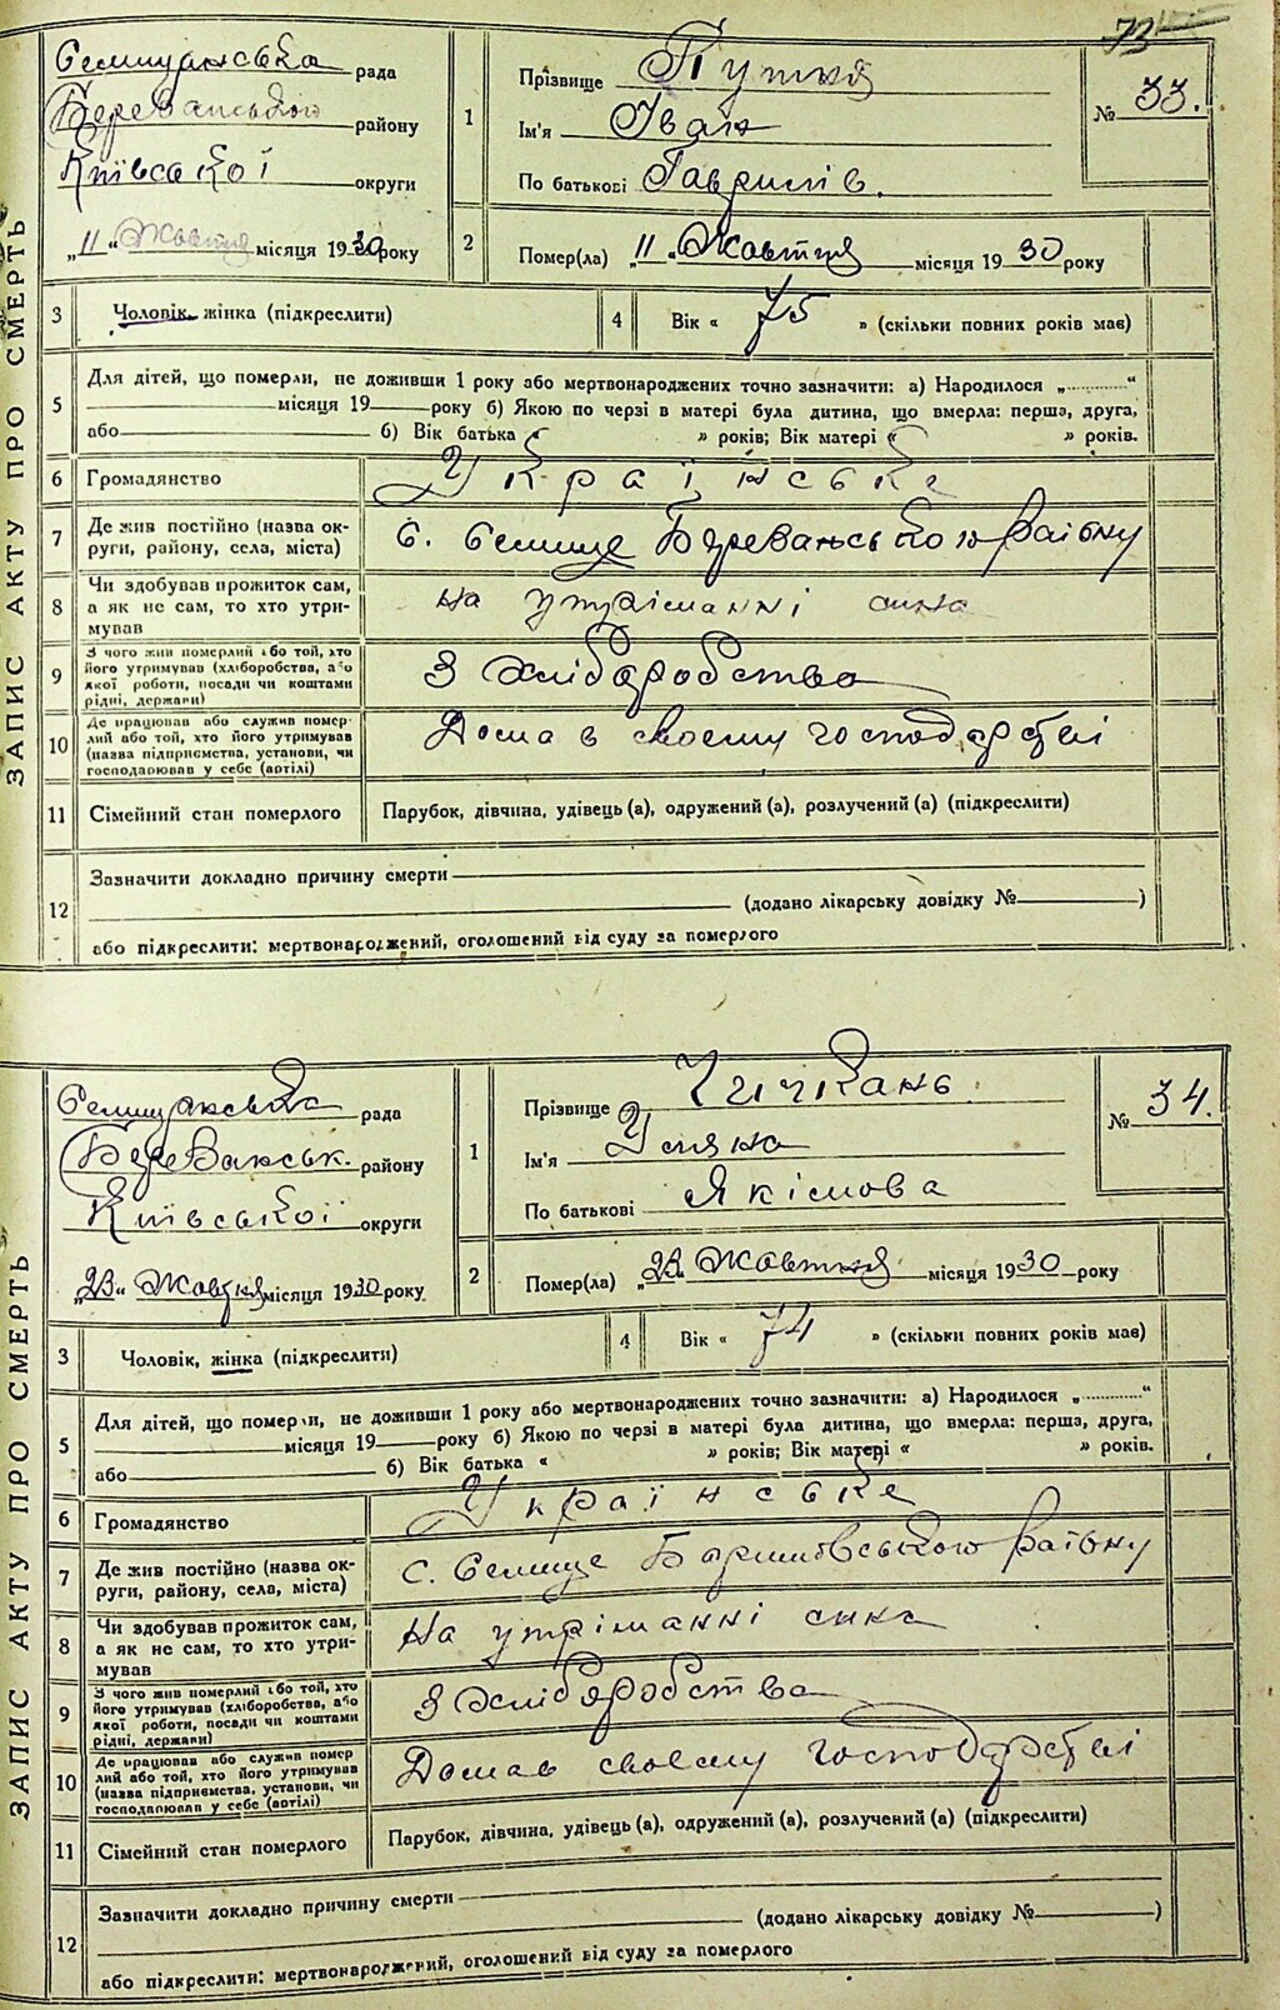 73
ЗАПИС АКТУ ПРО СМЕРТЬ
Селищанська рада
Березанського району
Київської округи
„11“ Жовтня місяця 1930 року
1
Прізвище
Ім'я Іван
По батькові Гаврилів.
№ 33.
2
Помер(ла) „11“ Жовтня місяця 1930 року
3
Чоловік, жінка (підкреслити)
4
Вік « 75 » (скільки повних років має)
5
Для дітей, що померли, не доживши 1 року або мертвонароджених точно зазначити: а) Народилося „............“
місяця 19 року б) Якою по черзі в матері була дитина, що вмерла: перша, друга,
або б) Вік батька « » років; Вік матері « » років.
6
Громадянство
Українське
7
Де жив постійно (назва ок-
руги, району, села, міста)
С. Селище Березанського району
8
Чи здобував прожиток сам,
а як не сам, то хто утри-
мував
на утріманні сина
9
З чого жив померлий або той, хто
його утримував (хліборобства, або
якої роботи, посади чи коштами
рідні, держави)
З Хліборобства
10
Де працював або служив помер-
лий або той, хто його утримував
(назва підприємства, установи, чи
господарював у себе (артілі)
Дома в своєму господарстві
11
Сімейний стан померлого
Парубок, дівчина, удівець (а), одружений (а), розлучений (а) (підкреслити)
12
Зазначити докладно причину смерти
(додано лікарську довідку № )
або підкреслити: мертвонароджений, оголошений від суду за померлого
ЗАПИС АКТУ ПРО СМЕРТЬ
Селищанська рада
Березанськ. району
Київської округи
„23“ Жовтня місяця 1930 року
1
Прізвище Чичкань.
Ім'я Уляна
По батькові Якімова
№ 34.
2
Помер(ла) „23“ Жовтня місяця 1930 року
3
Чоловік, жінка (підкреслити)
4
Вік « 74 » (скільки повних років має)
5
Для дітей, що померли, не доживши 1 року або мертвонароджених точно зазначити: а) Народилося „............“
місяця 19 року б) Якою по черзі в матері була дитина, що вмерла: перша, друга,
або б) Вік батька « » років; Вік матері « » років.
6
Громадянство
Українське
7
Де жив постійно (назва ок-
руги, району, села, міста)
С. Селище району
8
Чи здобував прожиток сам,
а як не сам, то хто утри-
мував
На утріманні сина
9
З чого жив померлий або той, хто
його утримував (хліборобства, або
якої роботи, посади чи коштами
рідні, держави)
З Хліборобства
10
Де працював або служив помер
лий або той, хто його утримував
(назва підприємства, установи, чи
господарював у себе (артілі)
Дома в своєму господарстві
11
Сімейний стан померлого
Парубок, дівчина, удівець (а), одружений (а), розлучений (а) (підкреслити)
12
Зазначити докладно причину смерти
(додано лікарську довідку № )
або підкреслити: мертвонароджений, оголошений від суду за померлого